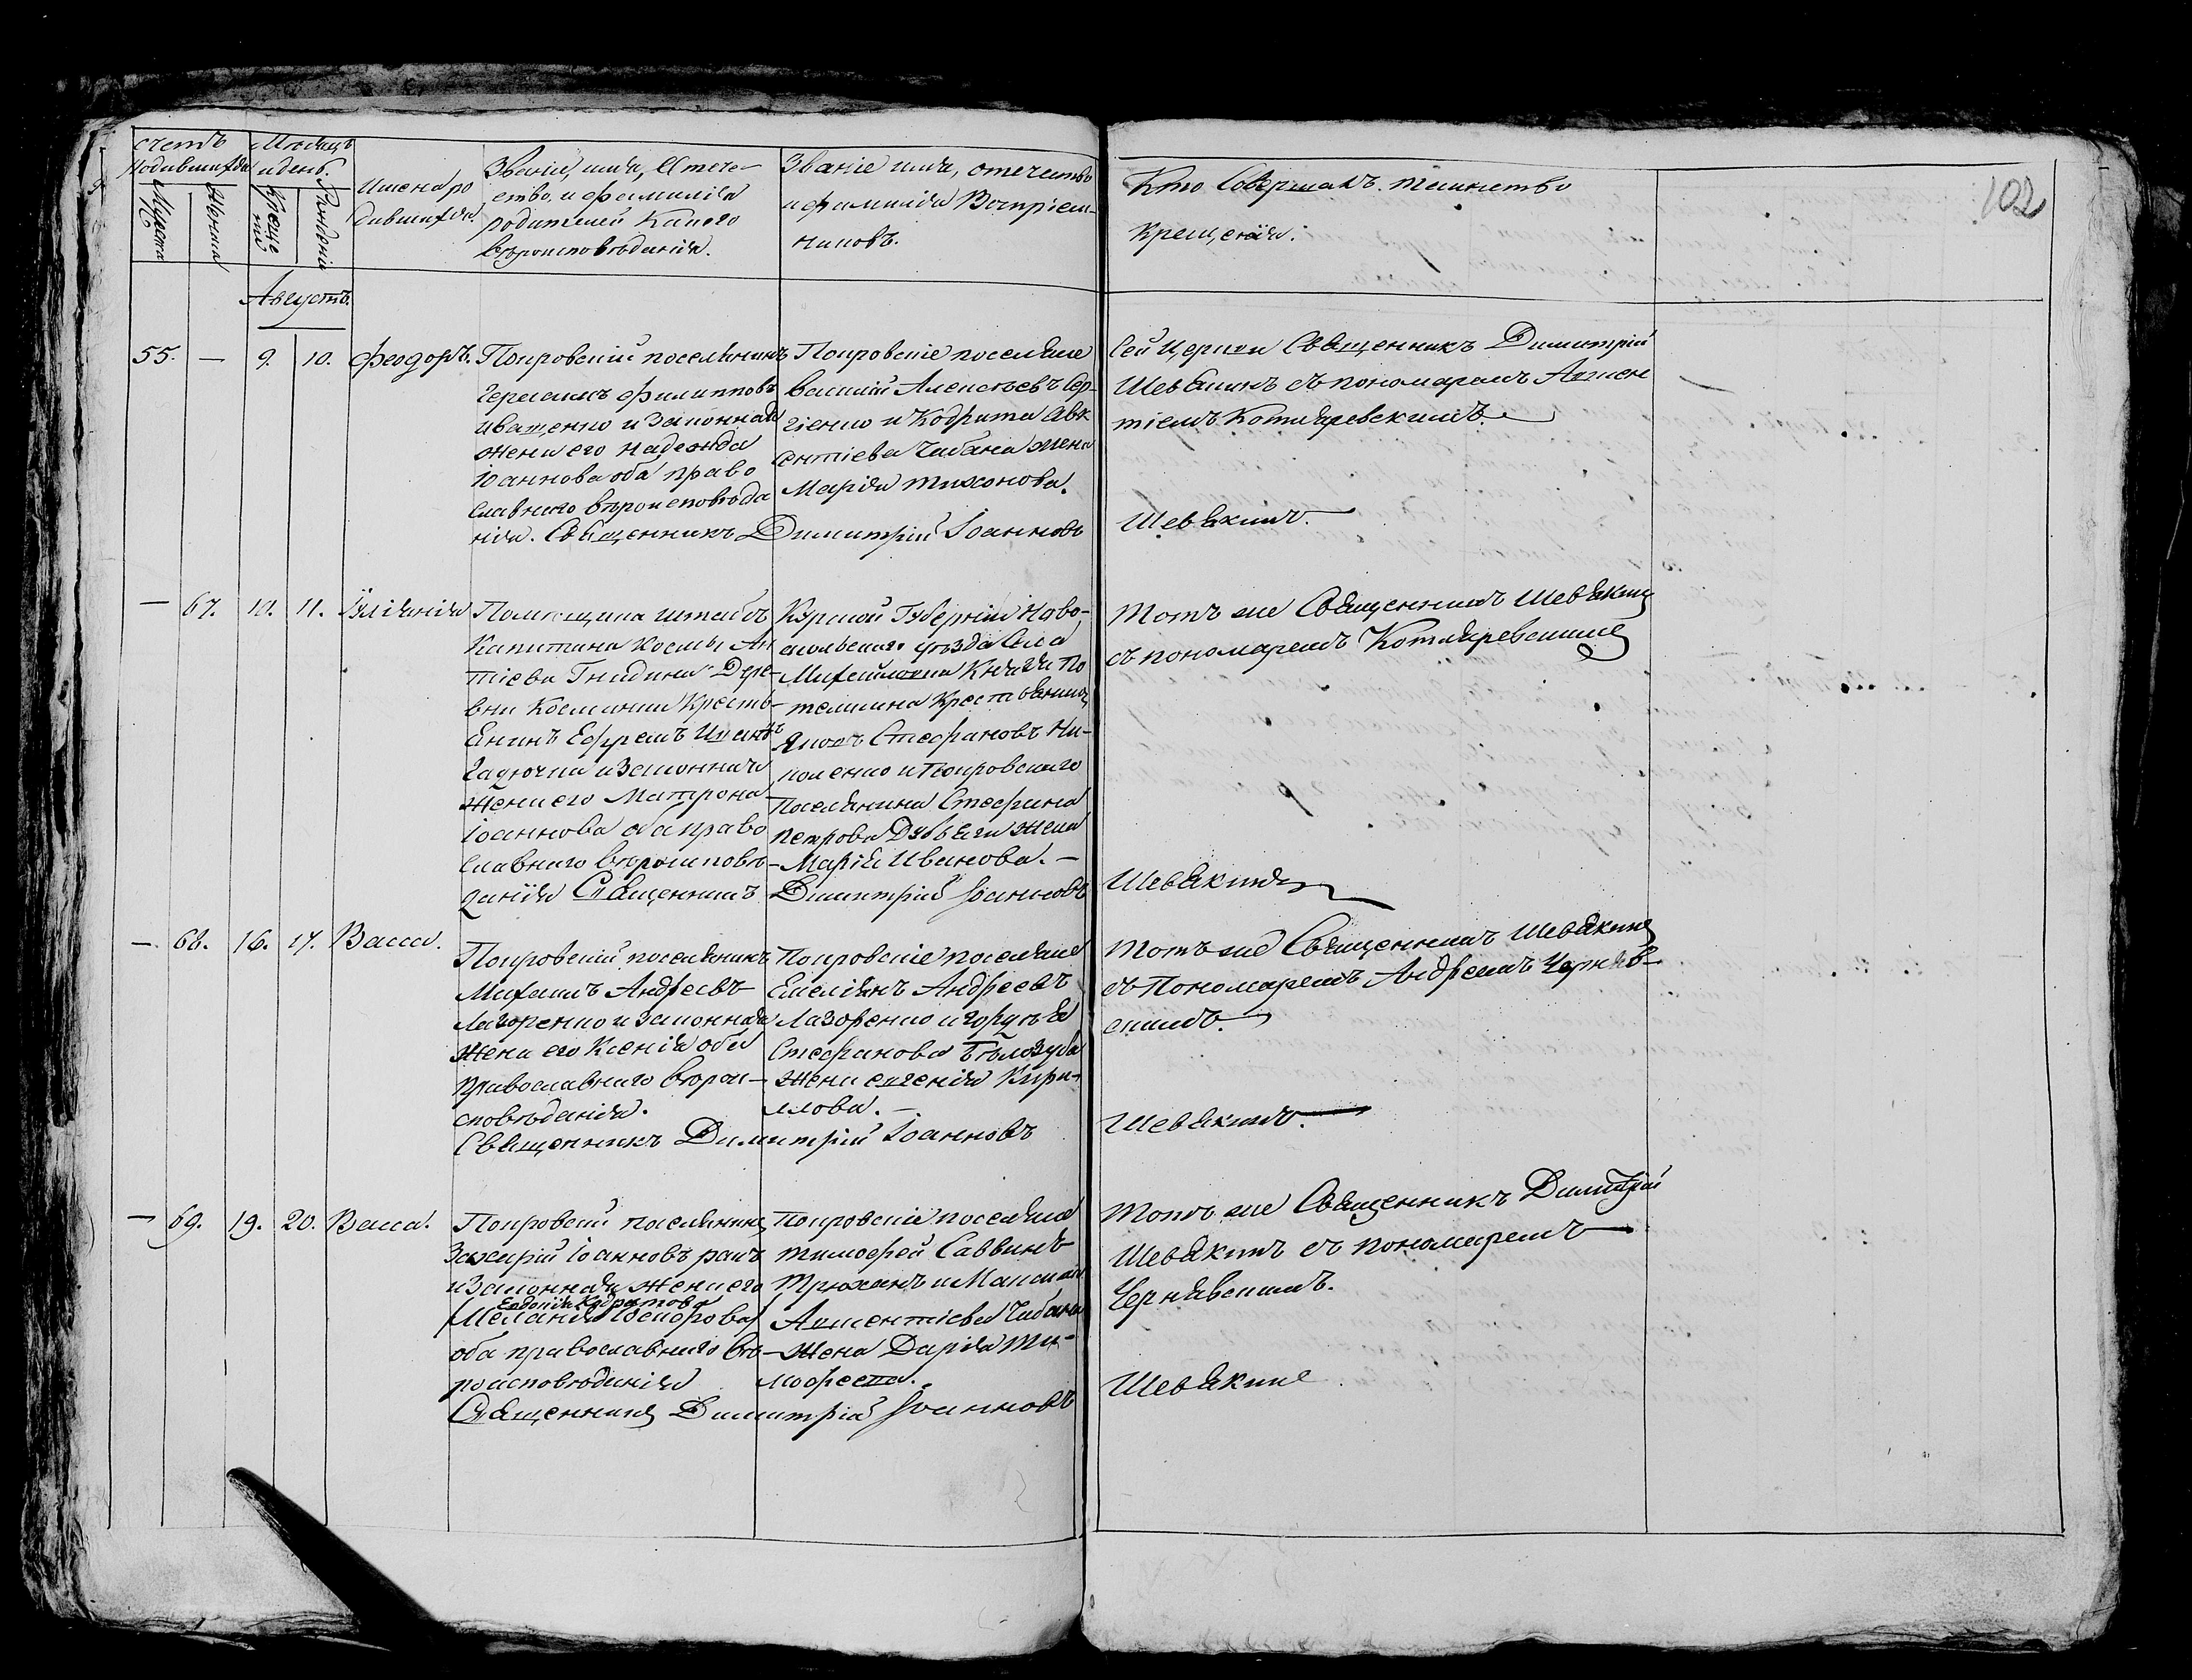 102
счетъ
Родившихся
Мужеска
Женска
Мѣсяцъ
и день.
Креще
нія
Рожденія
Имена ро
дившихся
Званіе, имя, Отече-
ство, и фамилія
родителей Какого
вѣроисповѣданія.
Званіе имя, отечество
и фамилія Воспріем-
никовъ.
Кто Совершалъ таинство
Крещенія.
Августъ.
55. — 9. 10. Феодоръ.
Покровскій поселянинъ
Герасимъ Филипповъ
Иващенко и Законная
жена его Надежда
Іоаннова оба право
славнаго вѣроисповѣда
нія. Священникъ Димитрій Іоанновъ
Покровскіе поселяне
Василій Алексѣевъ Сер-
гіенко и Кодрата Авк
сентіева Чабана жена
Марія Тихонова.
Сей Церкви Священникъ Димитрій
Шевякинъ съ пономаремъ Авксен
тіемъ Котляревскимъ.
Шевякинъ.
— 67. 10. 11. Іуліанія
Помѣщика Штабсъ
Капитана Космы Ан
тіева Гнидина Дере-
вни Косминки Кресть-
янинъ Ефремъ
и Законная
жена его Матрона
Іоаннова оба право
славнаго вѣроисповѣ-
данія Священникъ Димитрій Іоанновъ
Курской Губерніи Ново-
оскольскаго уѣзда Села
Михайловки Князя По
темкина Крестьянинъ
Яковъ Стефановъ Ни-
коленко и Покровскаго
Поселянина Стефана
Петрова Дубяги жена
Марія Иванова. —
Тотъ же Священникъ Шевякинъ
съ пономаремъ Котляревскимъ
Шевякинъ
— 68. 16. 17. Васса.
Покровскій поселянинъ
Михаилъ Андреевъ
Лазоренко и законная
жена его Ксенія оба
Православнаго вѣрои-
сповѣданія.
Священникъ Димитрій Іоанновъ
Покровскіе поселяне
Емеліянъ Андреевъ
Лазоренко и Гордѣя
Стефанова Бѣлозуба
жена Евгенія Кири-
лова. —
Тотъ же Священникъ Шевякинъ
съ Пономаремъ Андреемъ Черняв-
скимъ.
Шевякинъ.
— 69. 19. 20. Васса.
Покровскій поселянинъ
Захарій Іоанновъ ракъ
и Законная жена его
Евдокія Кодратова
(Меланія Феодорова)
оба православнаго вѣ-
роисповѣданія
Священникъ Димитрій Іоанновъ
Покровскіе поселяне
Тимофей Саввинъ
Трюханъ и Максима
Авксентіева Чабана
жена Дарія Ти-
мофеева.
Тотъ же Священникъ Димитрій
Шевякинъ съ пономаремъ
Чернявскимъ.
Шевякинъ